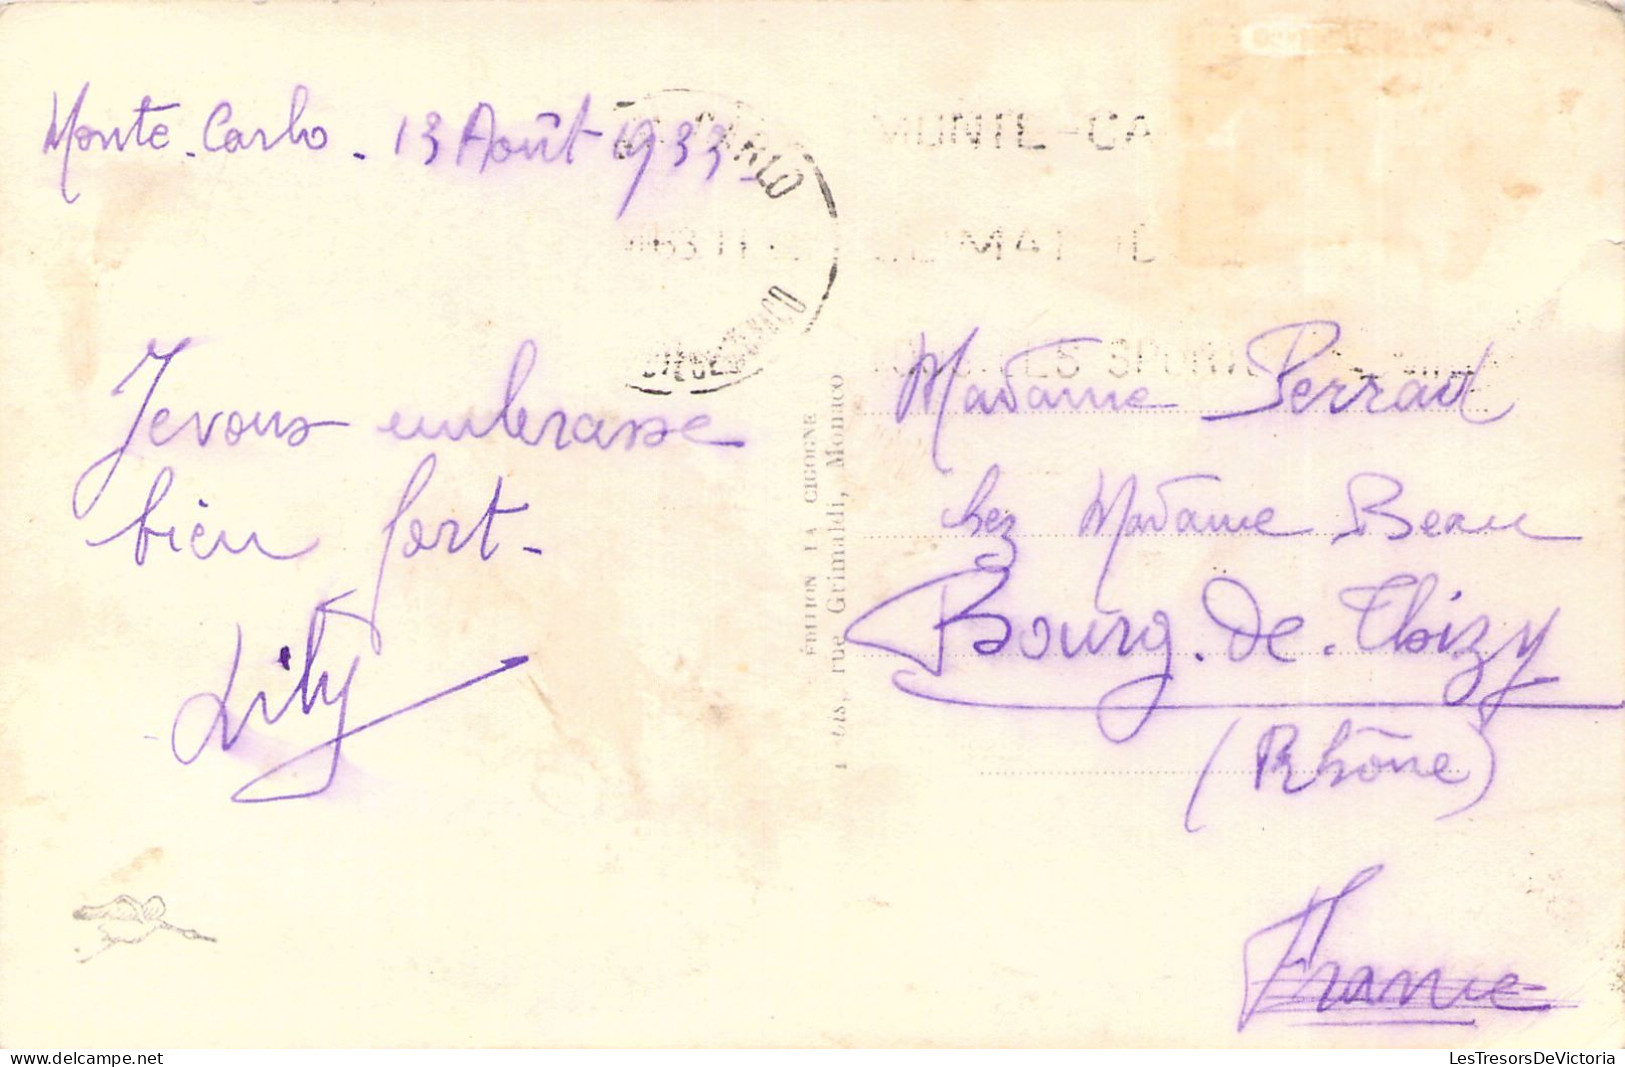 Monte-Carlo - 13 Août 1933-
MONTE-CA
Je vous embrasse
bien fort-
Lily
ÉDITION LA CIGOGNE
bis, rue Grimaldi, Monaco
Madame Perrad
chez Madame Beau
Bourg-de-Thizy
(Rhône)
France
LesTresorsDeVictoria